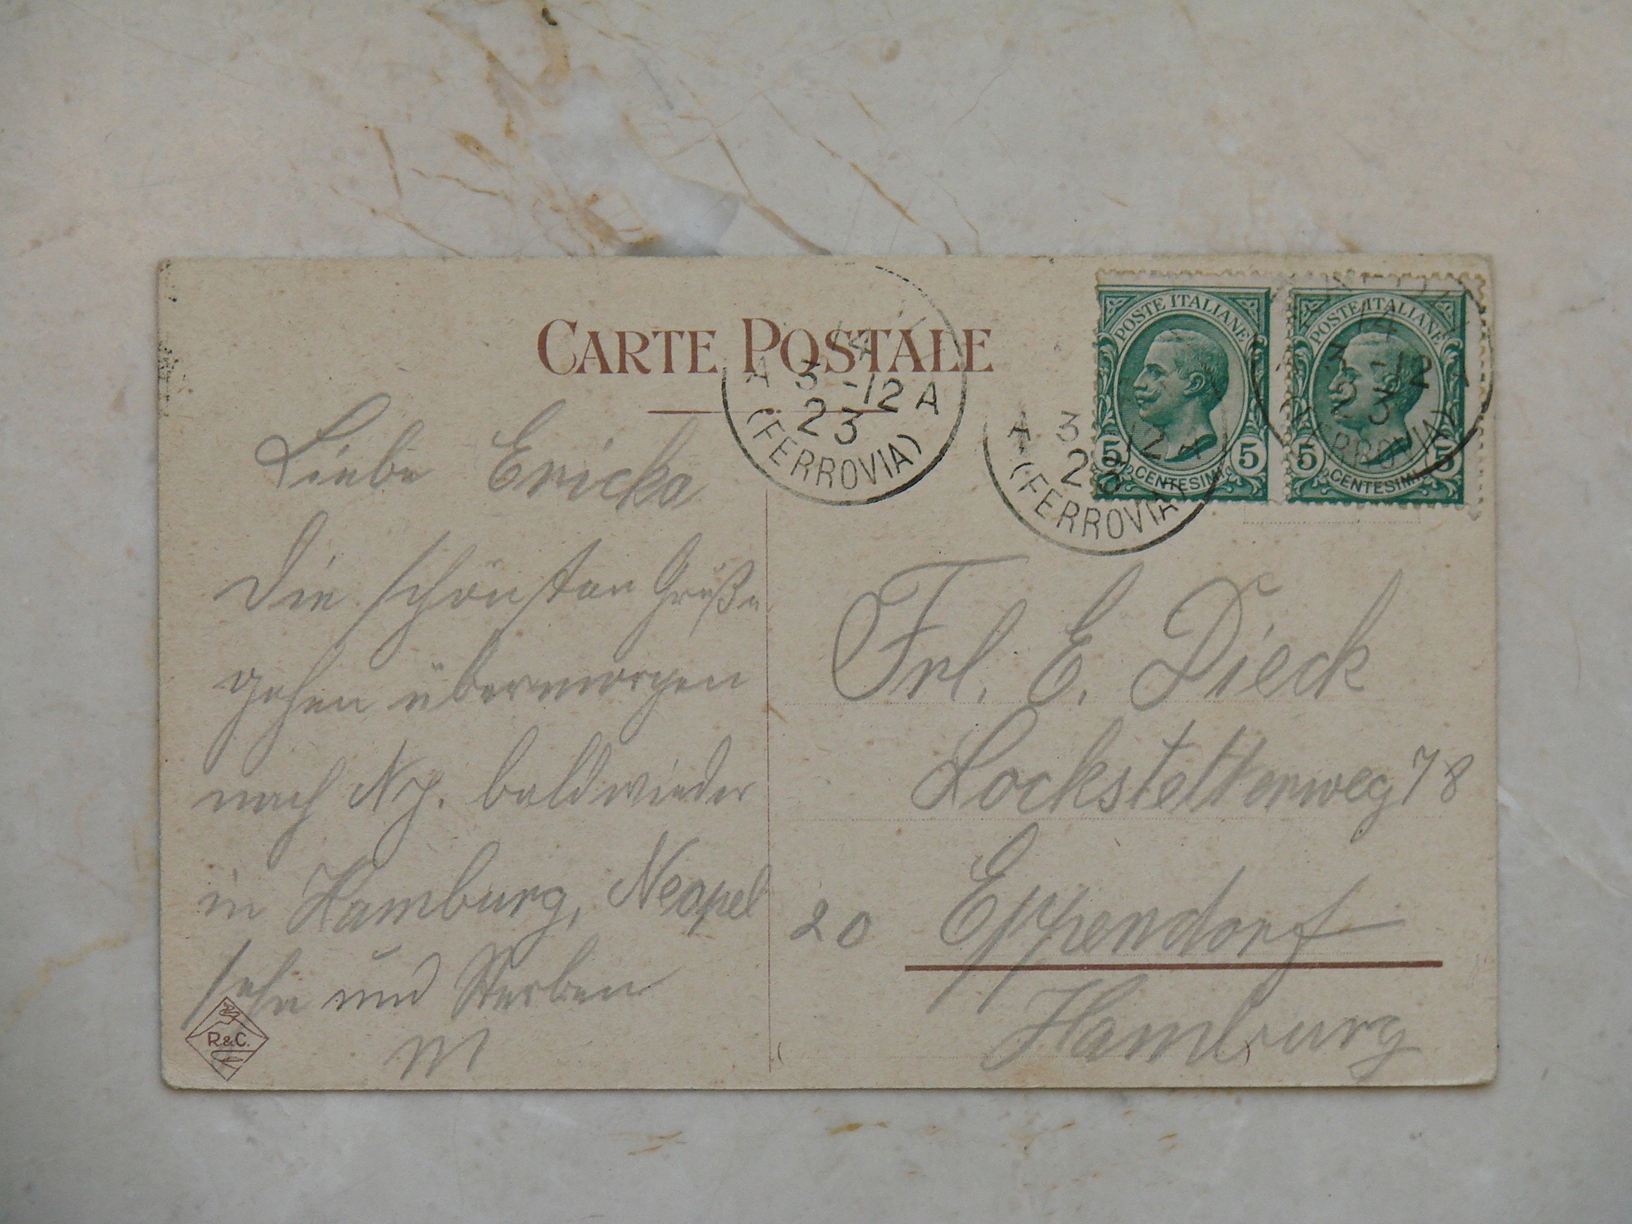 CARTE POSTALE
POSTE ITALIANE
5 CENTESIMI 5
POSTE ITALIANE
5 CENTESIMI 5
14
A 3-12 A
23
(FERROVIA)
A 3-12 A
23
(FERROVIA)
14
3-12
23
(FERROVIA)
Liebe Ericka
Die schönsten Grüße
gehen übermorgen
nach N.Y. bald wieder
in Hamburg, Neapel
sehn und Sterben
M
R.&C.
Frl. E. Dieck
Lockstettenweg 78
20 Eppendorf
Hamburg